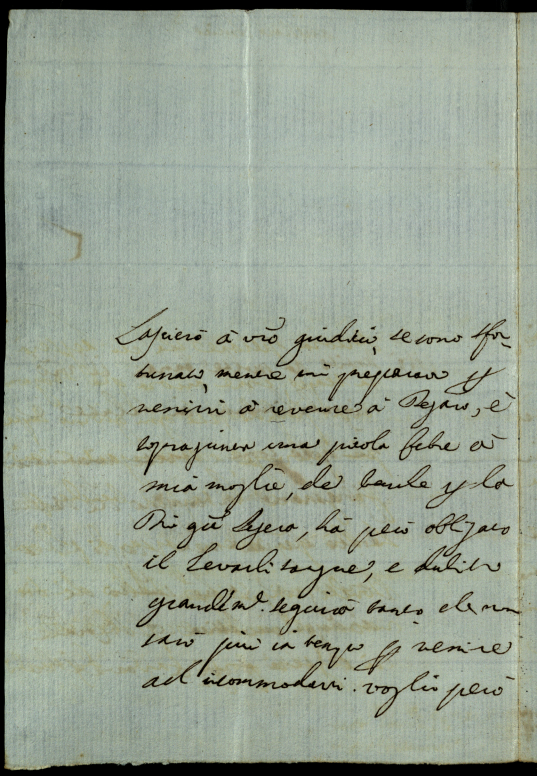 Lascierò à vrõ giuditio, se sono sfor-
tunato, mentre mi preparavo p
venirvi à reverire à Pesaro, è
sopragiunta una picola febre à
mia moglie, che benche p la
Dio grã legera, hà però obligato
il Levarli sangue, e dubito
grandem.e seguirà tanto che non
sarò più in tempo p venire
ad incommodarvi. voglio però